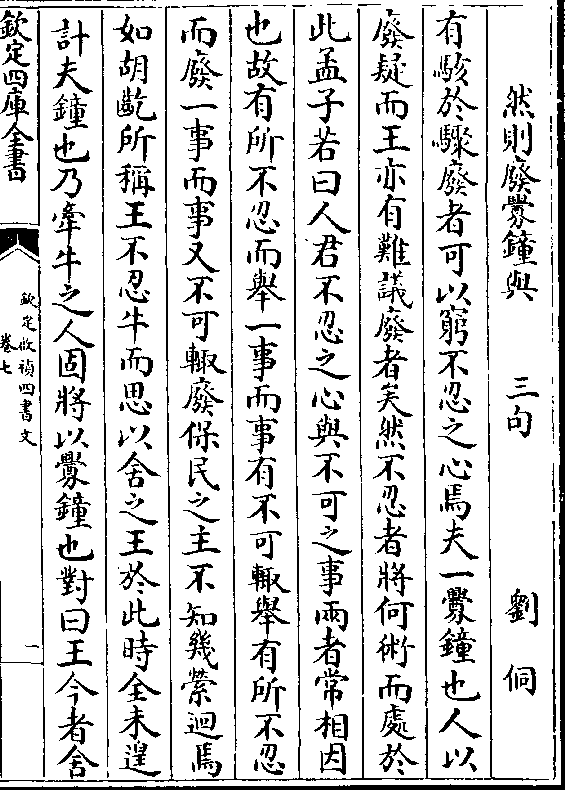 然則廢釁鐘與　三句　劉侗
有駭於驟廢者可以窮不忍之心焉夫一釁鐘也人以
廢疑而王亦有難議廢者矣然不忍者將何術而處於
此孟子若曰人君不忍之心與不可之事兩者常相因
也故有所不忍而舉一事而事有不可輙舉有所不忍
而廢一事而事又不可輙廢保民之主不知幾縈迴焉
如胡齕所稱王不忍牛而思以舍之王於此時全未遑
計夫鐘也乃牽牛之人固將以釁鐘也對曰王今者舍
欽定四庫全書
欽定啟禎四書文
卷七
一